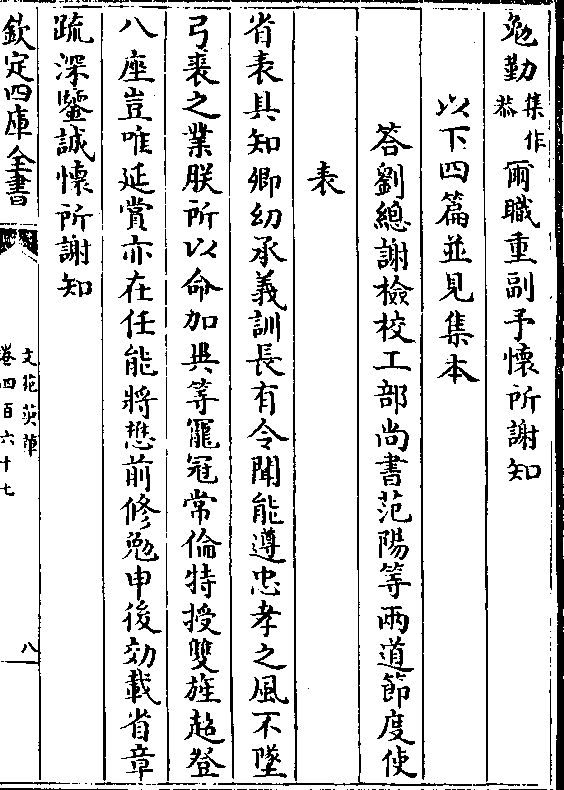 勉勤集作恭爾職重副予懷所謝知
以下四篇並見集本
答劉總謝檢校工部尚書范陽等兩道節度使
表
省表具知卿幼承義訓長有令聞能遵忠孝之風不墜
弓裘之業朕所以命加異等寵冠常倫特授雙旌超登
八座豈唯延賞亦在任能將懋前修勉申後効載省章
疏深鑒誠懷所謝知
欽定四庫全書
文苑英華
卷四百六十七
八